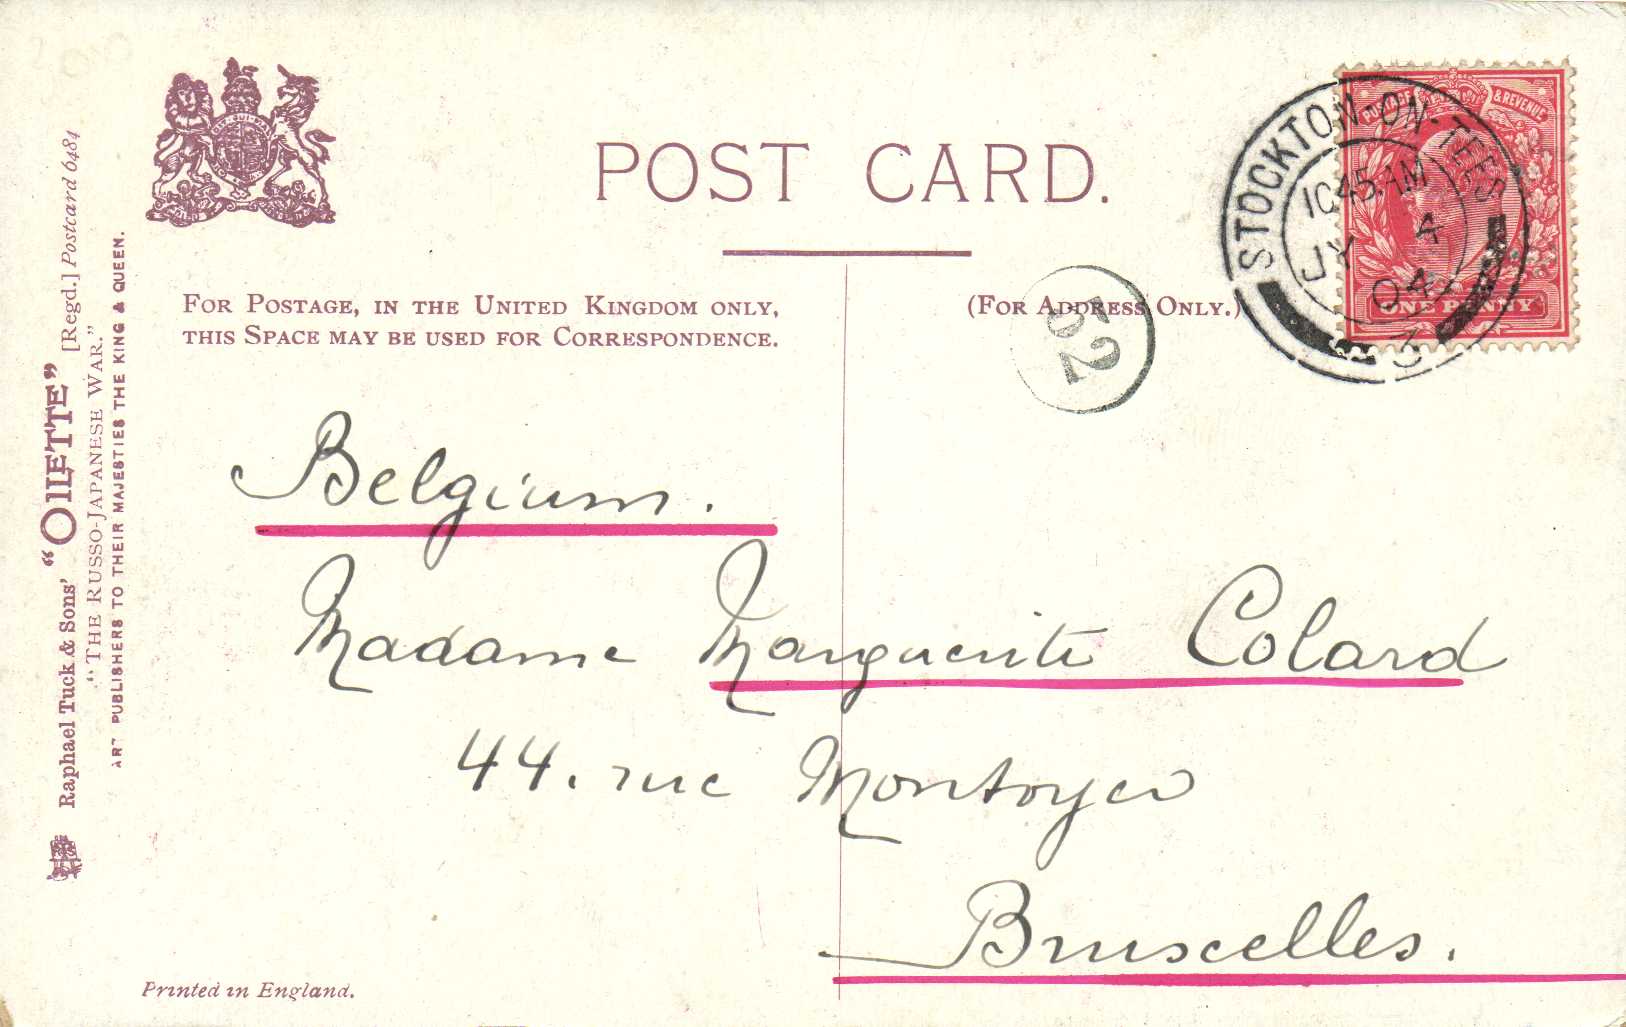 POST CARD.
FOR POSTAGE, IN THE UNITED KINGDOM ONLY,
THIS SPACE MAY BE USED FOR CORRESPONDENCE.
(FOR ADDRESS ONLY.)
52
STOCKTON-ON-TEES
10 45 AM
JY 4
04
POSTAGE & REVENUE
ONE PENNY
Belgium.
Madame Marguerite Colard
44. rue Montoyer
Bruxelles.
Raphael Tuck & Sons' "OILETTE" [Regd.] Postcard 6484
"THE RUSSO-JAPANESE WAR."
ART PUBLISHERS TO THEIR MAJESTIES THE KING & QUEEN.
Printed in England.